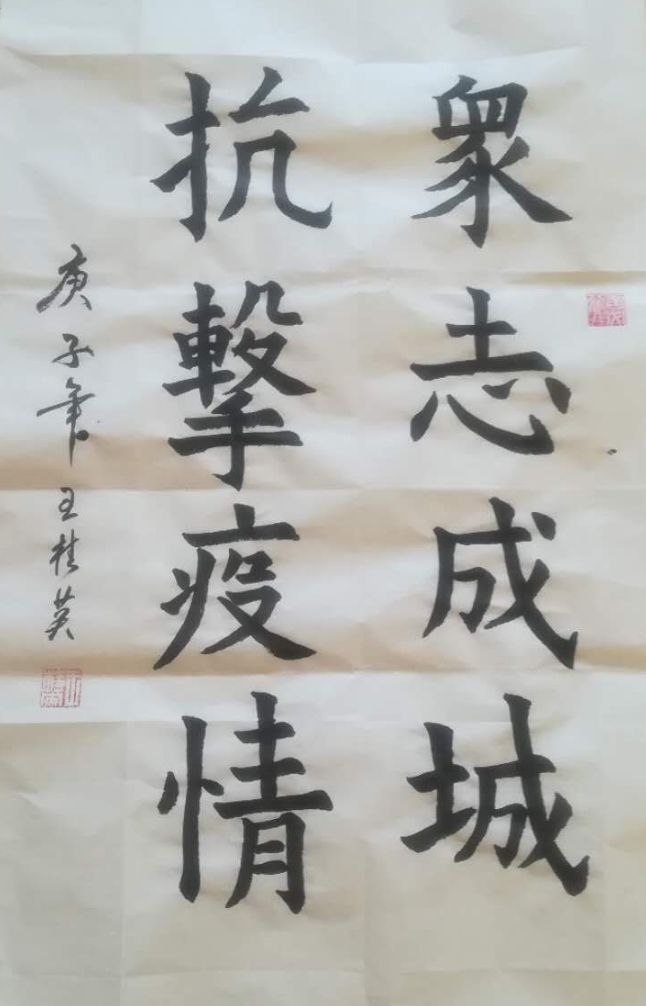 眾志成城
抗擊疫情
庚子年 王桂英